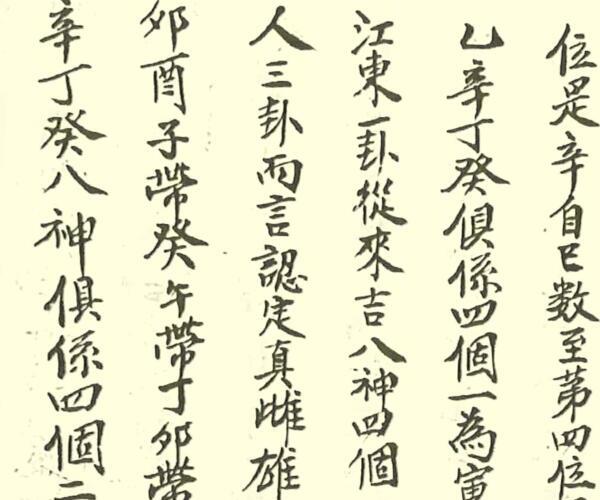 位是辛自巳数至第四位
乙辛丁癸俱係四個一為寅
江東一卦從來吉八神四個
人三卦而言認定真雌雄
卯酉子帶癸午帶丁卯帶
辛丁癸八神俱係四個二